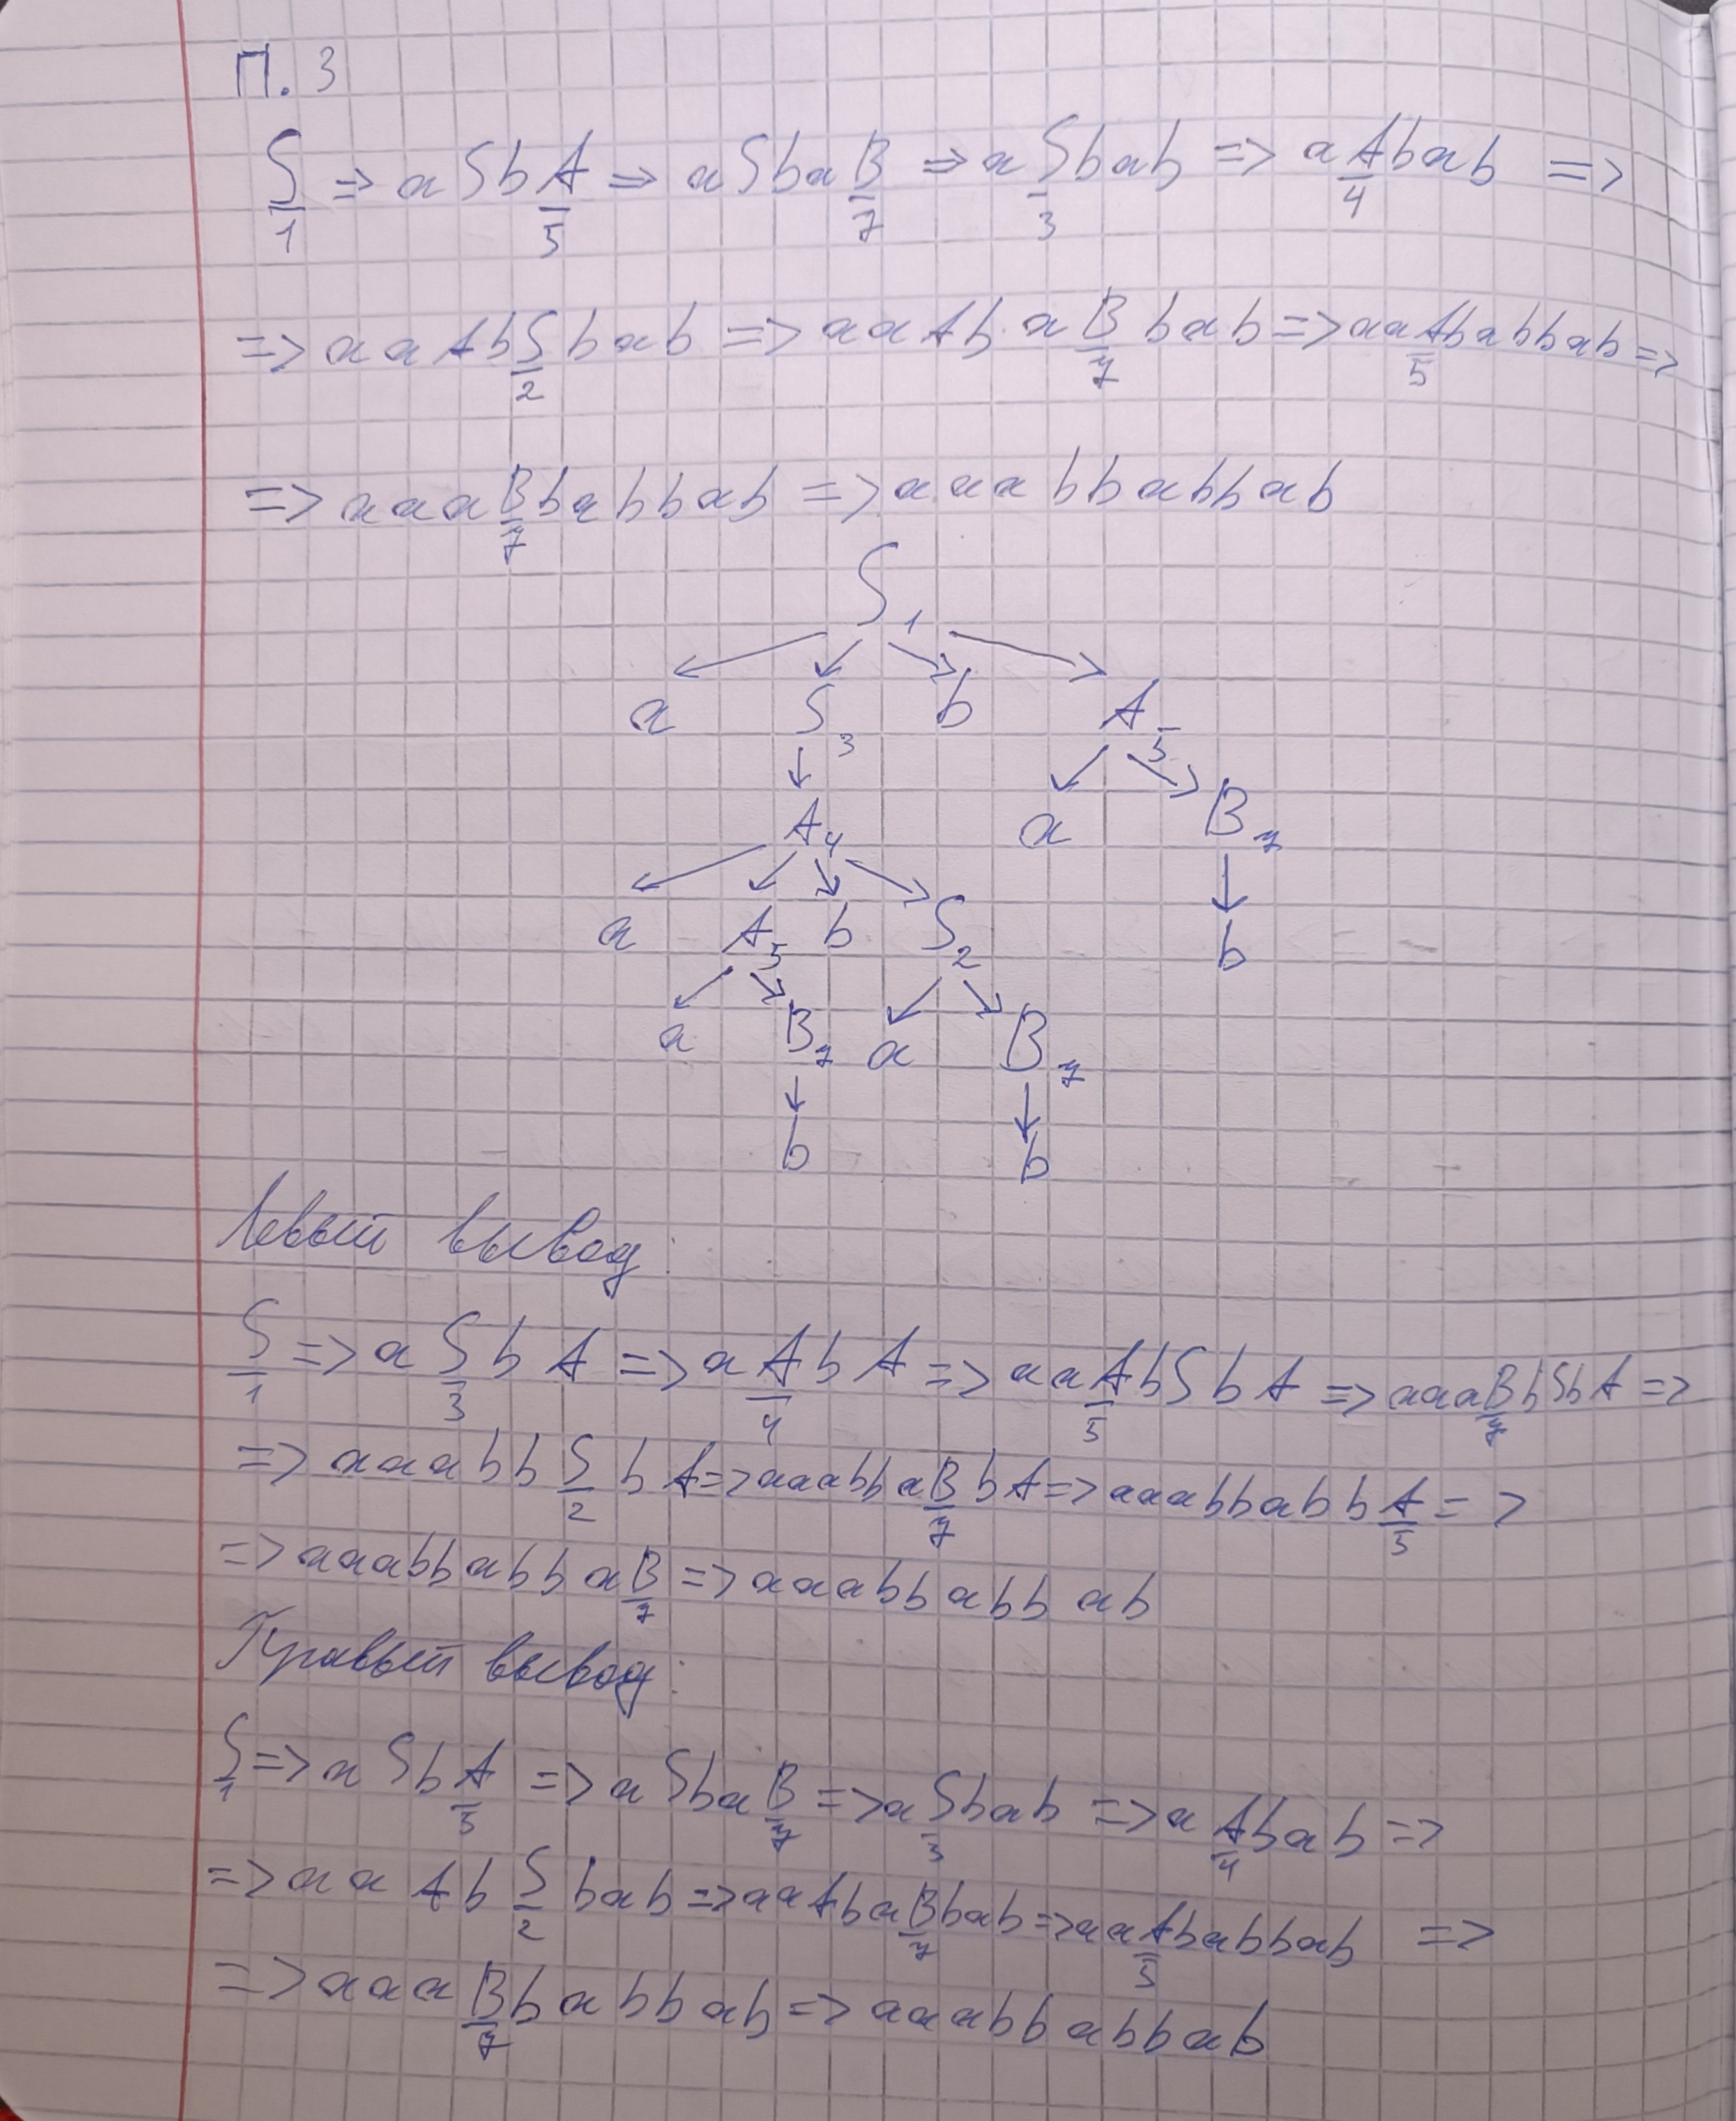 П. 3
S => aSbA => aSbaB => aSbab => aAbab =>
1 5 7 3 4
=> aaAbSbab => aaAbaBbab => aaAbabbab =>
2 7 5
=> aaaBbabbab => aaabbabbab
7
S1
a S3 b A5
A4 a B7
a A5 b S2 b
a B7 a B7
b b
Левый вывод:
S => aSbA => aAbA => aaAbSbA => aaaBbSbA =>
1 3 4 5 7
=> aaabbSbA => aaabbaBbA => aaabbabbA =>
2 7 5
=> aaabbabbaB => aaabbabbab
7
Правый вывод:
S => aSbA => aSbaB => aSbab => aAbab =>
1 5 7 3 4
=> aaAbSbab => aaAbaBbab => aaAbabbab =>
2 7 5
=> aaaBbabbab => aaabbabbab
7